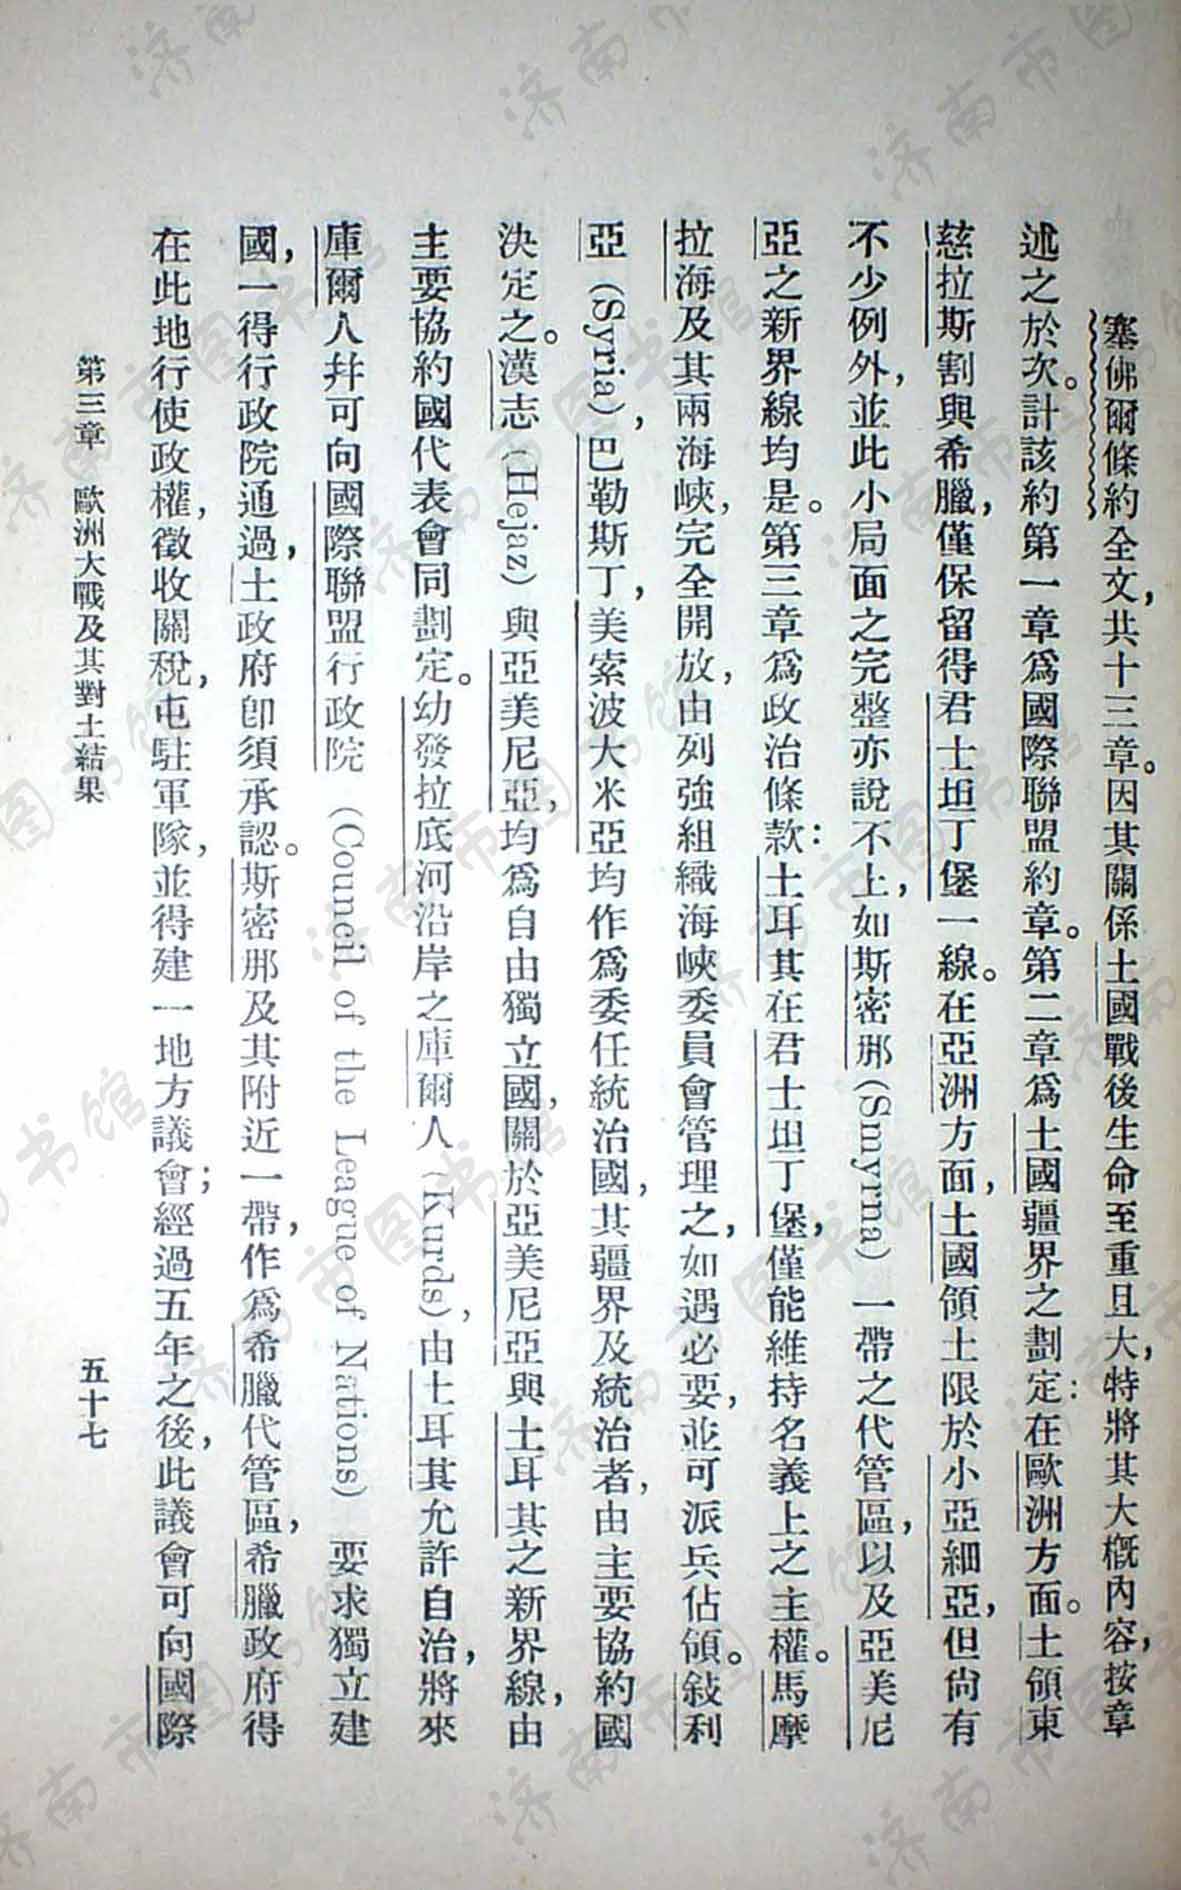 塞佛爾條約全文，共十三章。因其關係土國戰後生命至重且大，特將其大概內容，按章
述之於次。計該約第一章爲國際聯盟約章。第二章爲土國疆界之劃定：在歐洲方面。土領東
慈拉斯割與希臘，僅保留得君士坦丁堡一線。在亞洲方面，土國領土限於小亞細亞，但尙有
不少例外，並此小局面之完整亦說不上，如斯密那（Smyrna）一帶之代管區，以及亞美尼
亞之新界線均是。第三章爲政治條款：土耳其在君士坦丁堡，僅能維持名義上之主權。馬摩
拉海及其兩海峽，完全開放，由列強組織海峽委員會管理之，如遇必要，並可派兵佔領。敍利
亞（Syria），巴勒斯丁，美索波大米亞均作爲委任統治國，其疆界及統治者，由主要協約國
決定之。漢志（Hejaz）與亞美尼亞，均爲自由獨立國，關於亞美尼亞與土耳其之新界線，由
主要協約國代表會同劃定。幼發拉底河沿岸之庫爾人（Kurds），由土耳其允許自治，將來
庫爾人幷可向國際聯盟行政院（Council of the League of Nations）要求獨立建
國，一得行政院通過，土政府卽須承認。斯密那及其附近一帶，作爲希臘代管區，希臘政府得
在此地行使政權，徵收關稅，屯駐軍隊，並得建一地方議會；經過五年之後，此議會可向國際
第三章 歐洲大戰及其對土結果
五十七
济南市图书馆